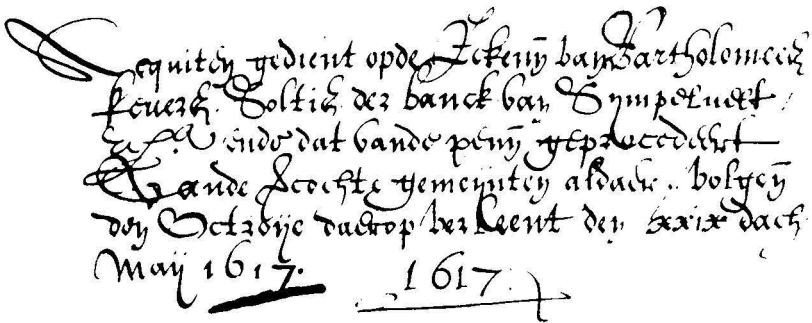 Acquiten gedient opde Rekenn van Bartholomeus
keuers Soltis der banck van Sympelueert
ende dat vande penn geprocedeert
Vande vcochte gemeynten aldaer volgen
den Octroye daerop verleent den xxix dach
Maij 1617. 1617.